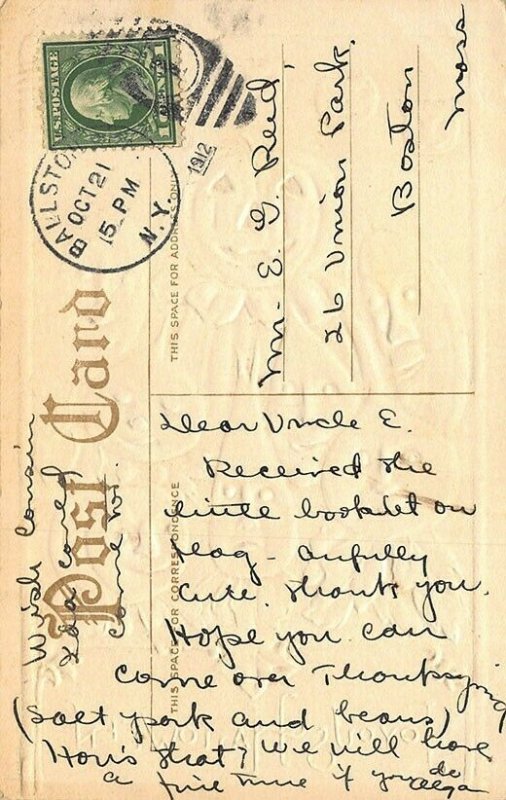 U.S. POSTAGE
1 CENT 1
BALLSTON
OCT 21
15 PM
N.Y.
1912
Post Card
THIS SPACE FOR ADDRESS ONLY
THIS SPACE FOR CORRESPONDENCE
Mr. E. G. Reid
26 Union Park.
Boston
Mass
Dear Uncle E.
Received the
little booklet on
Hog - awfully
cute. Thank you.
Hope you can
come over Thanksgiving
(Salt pork and beans)
How's that? We will have
a fine time if you do
Wish Cousin
Ida could
come too.